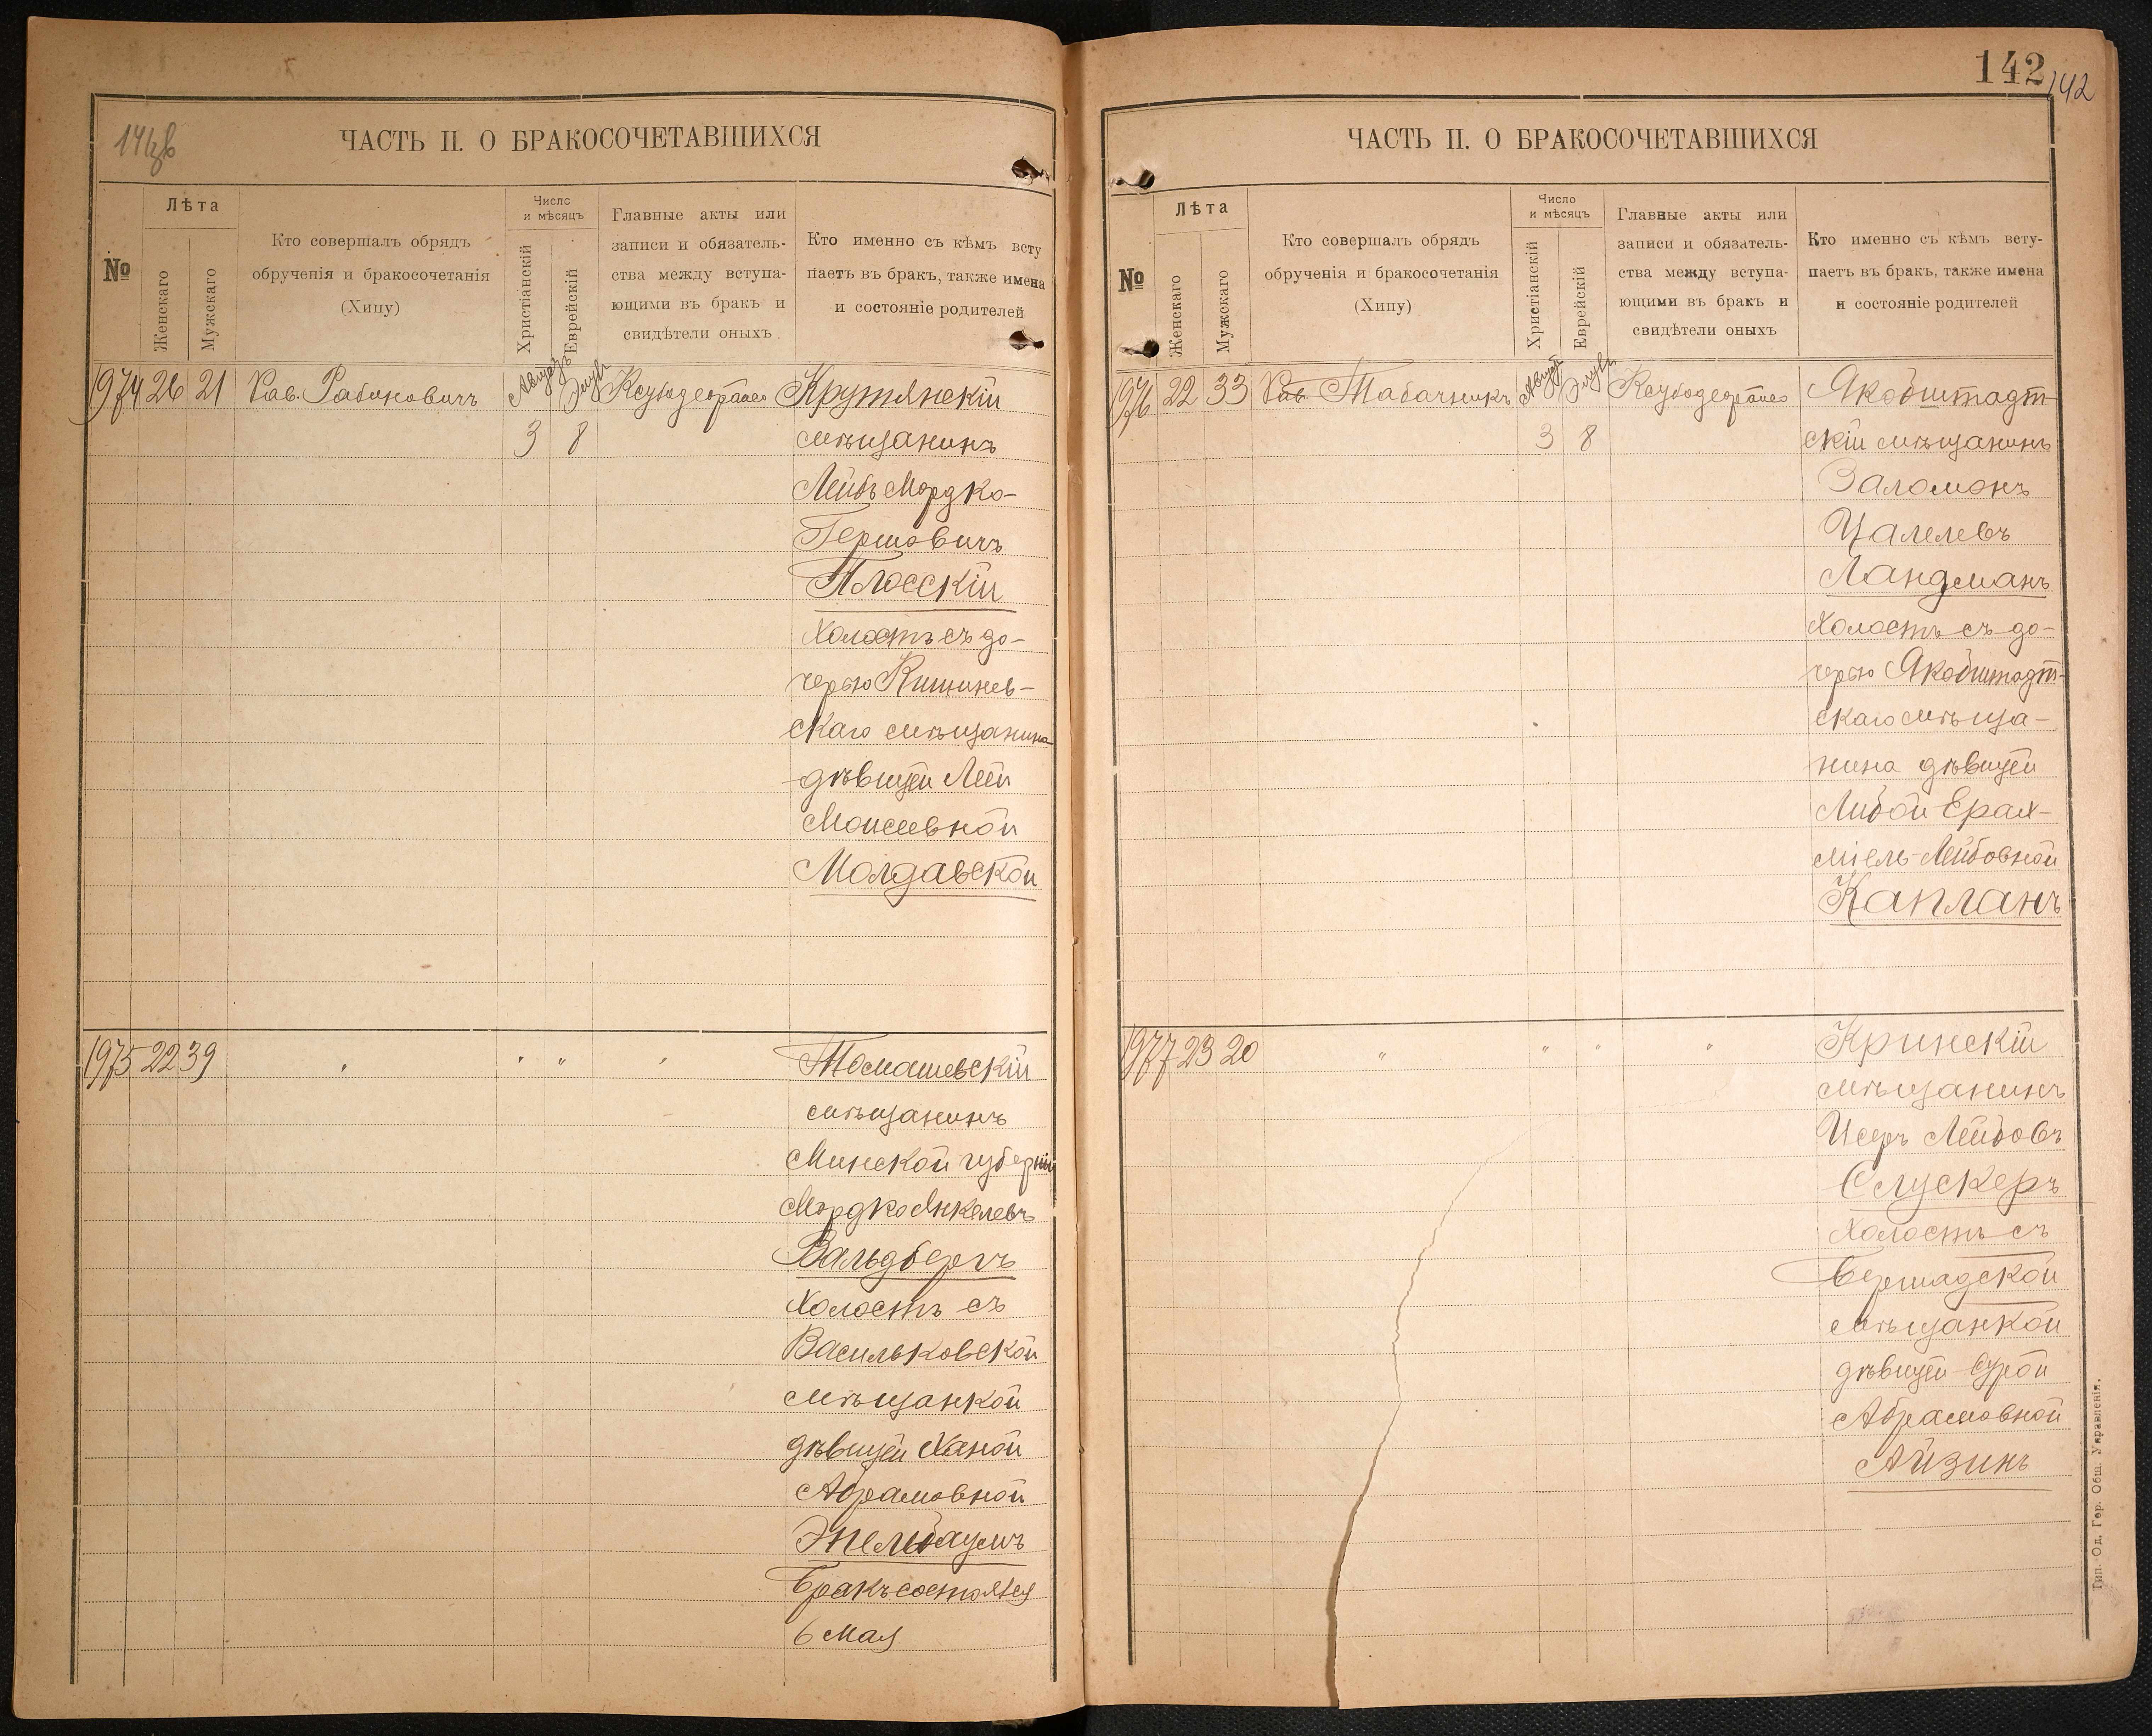 141 об
ЧАСТЬ II. О БРАКОСОЧЕТАВШИХСЯ
№
Лѣта
Женскаго
Мужскаго
Кто совершалъ обрядъ
обрученія и бракосочетанія
(Хипу)
Число
и мѣсяцъ
Христіанскій
Еврейскій
Главные акты или
записи и обязатель-
ства между вступа-
ющими въ бракъ и
свидѣтели оныхъ
Кто именно съ кѣмъ всту
паетъ въ бракъ, также имена
и состояніе родителей
1974 26 21 Рав. Рабиновичъ Августъ Элулъ Крутянскій
3 8 мѣщанинъ
Лейбъ Мордко-
Гершовичъ
Плосскій
холостъ съ до-
черью Кишинев-
скаго мѣщанина
дѣвицей Леей
Моисеевной
Молдавской
1975 22 39 " " " " Томашевскій
мѣщанинъ
Минской губерніи
Мордко Янкелевъ
Вальдбергъ
холостъ съ
Васильковской
мѣщанкой
дѣвицей Ханой
Абрамовной
Эпельбаумъ
Бракъ состоялся
6 мая
142
142
ЧАСТЬ II. О БРАКОСОЧЕТАВШИХСЯ
№
Лѣта
Женскаго
Мужскаго
Кто совершалъ обрядъ
обрученія и бракосочетанія
(Хипу)
Число
и мѣсяцъ
Христіанскій
Еврейскій
Главные акты или
записи и обязатель-
ства между вступа-
ющими въ бракъ и
свидѣтели оныхъ
Кто именно съ кѣмъ всту-
паетъ въ бракъ, также имена
и состояніе родителей
1976 22 33 Рав. Табачникъ Августъ Элулъ Якобштадт-
3 8 скій мѣщанинъ
Заломонъ
Цалелевъ
Ландманъ
холостъ съ до-
черью Якобштадт-
скаго мѣща-
нина дѣвицей
Либой Ерах-
міель-Лейбовной
Капланъ
1977 23 20 " " " " Кринскій
мѣщанинъ
Исеръ Лейбовъ
Слускеръ
холостъ съ
Бершадской
мѣщанкой
дѣвицей Сурой
Абрамовной
Айзинъ
Тип. Од. Гор. Общ. Управленія.